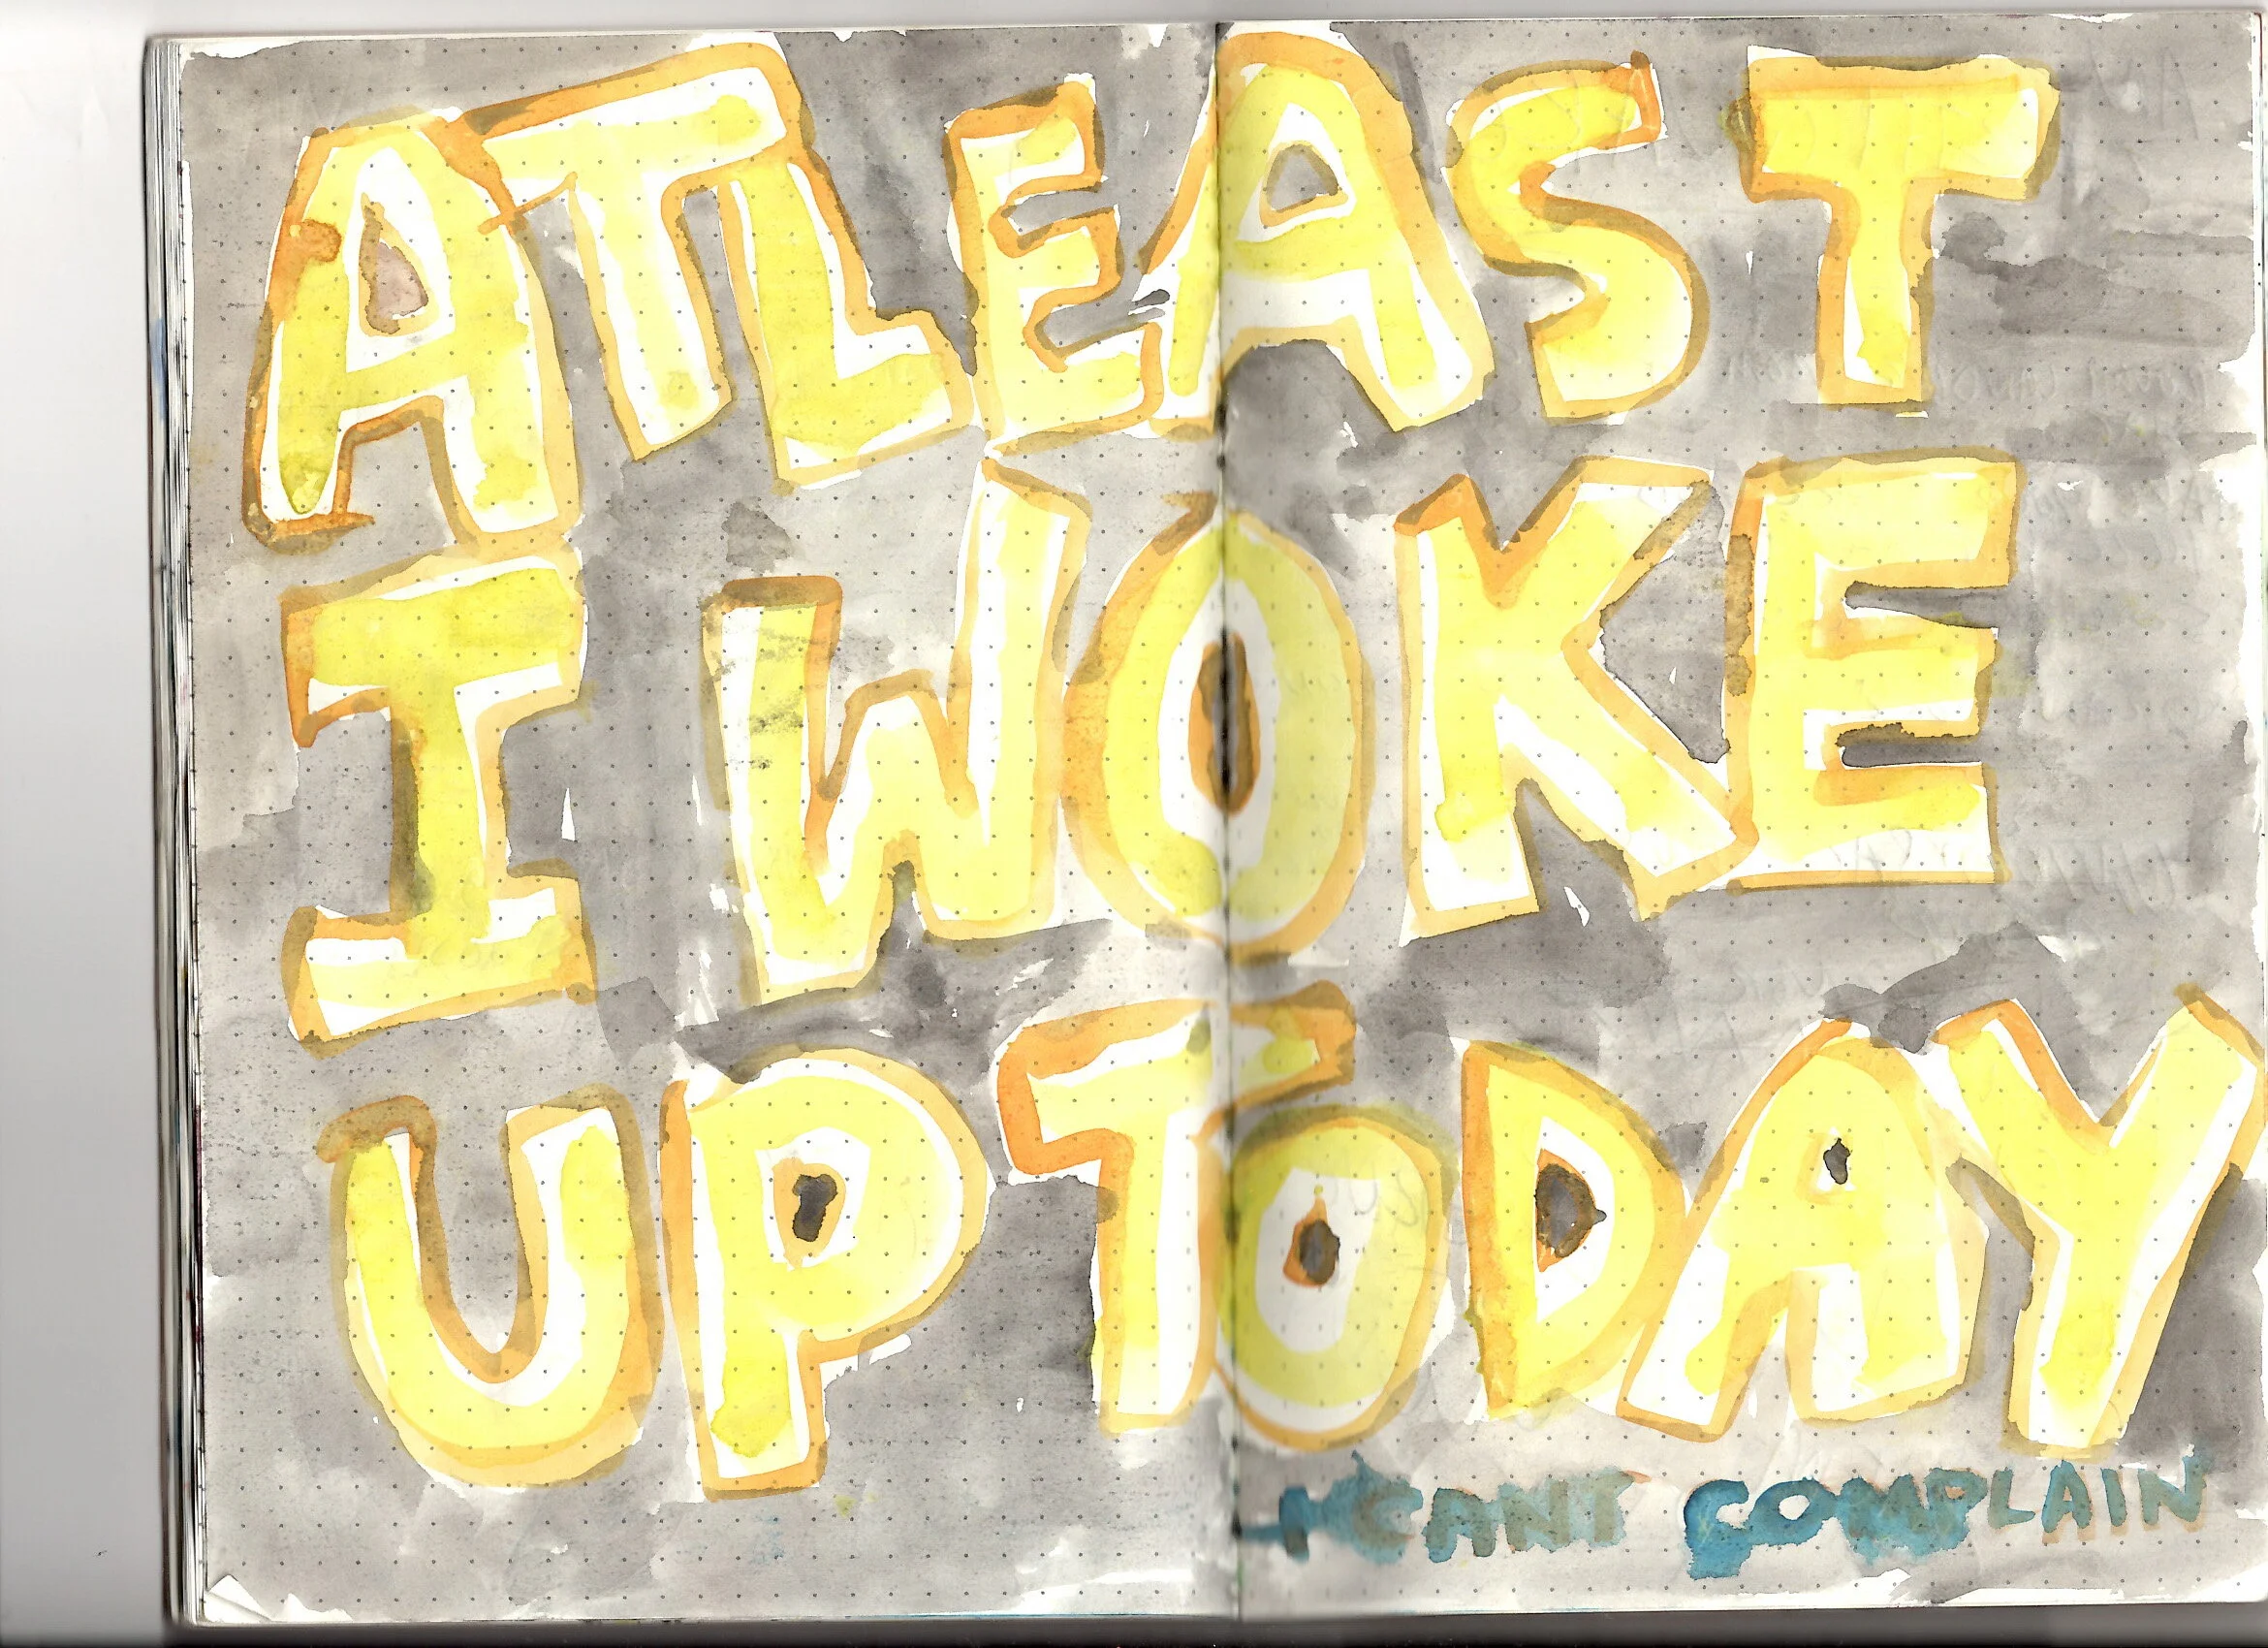 ATLEAST
I WOKE
UP TODAY
I CANT COMPLAIN